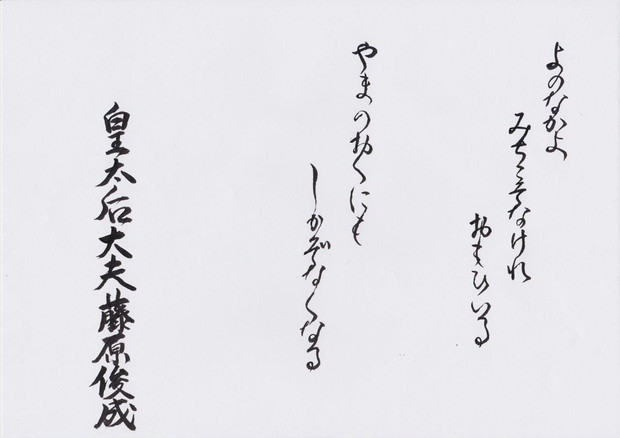 よのなかよ
みちこそなけれ
おもひいる
やまのおくにも
しかぞなくなる
皇太后大夫藤原俊成